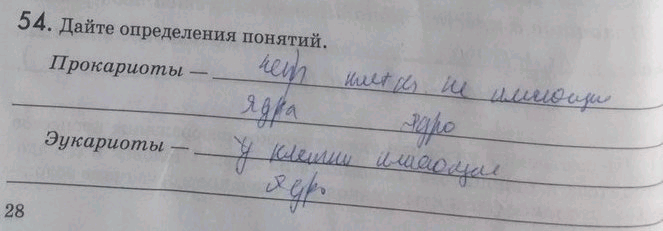 54. Дайте определения понятий.
Прокариоты — нет клетки не имеющие
ядра ядро
Эукариоты — у клетки имеющие
ядро
28